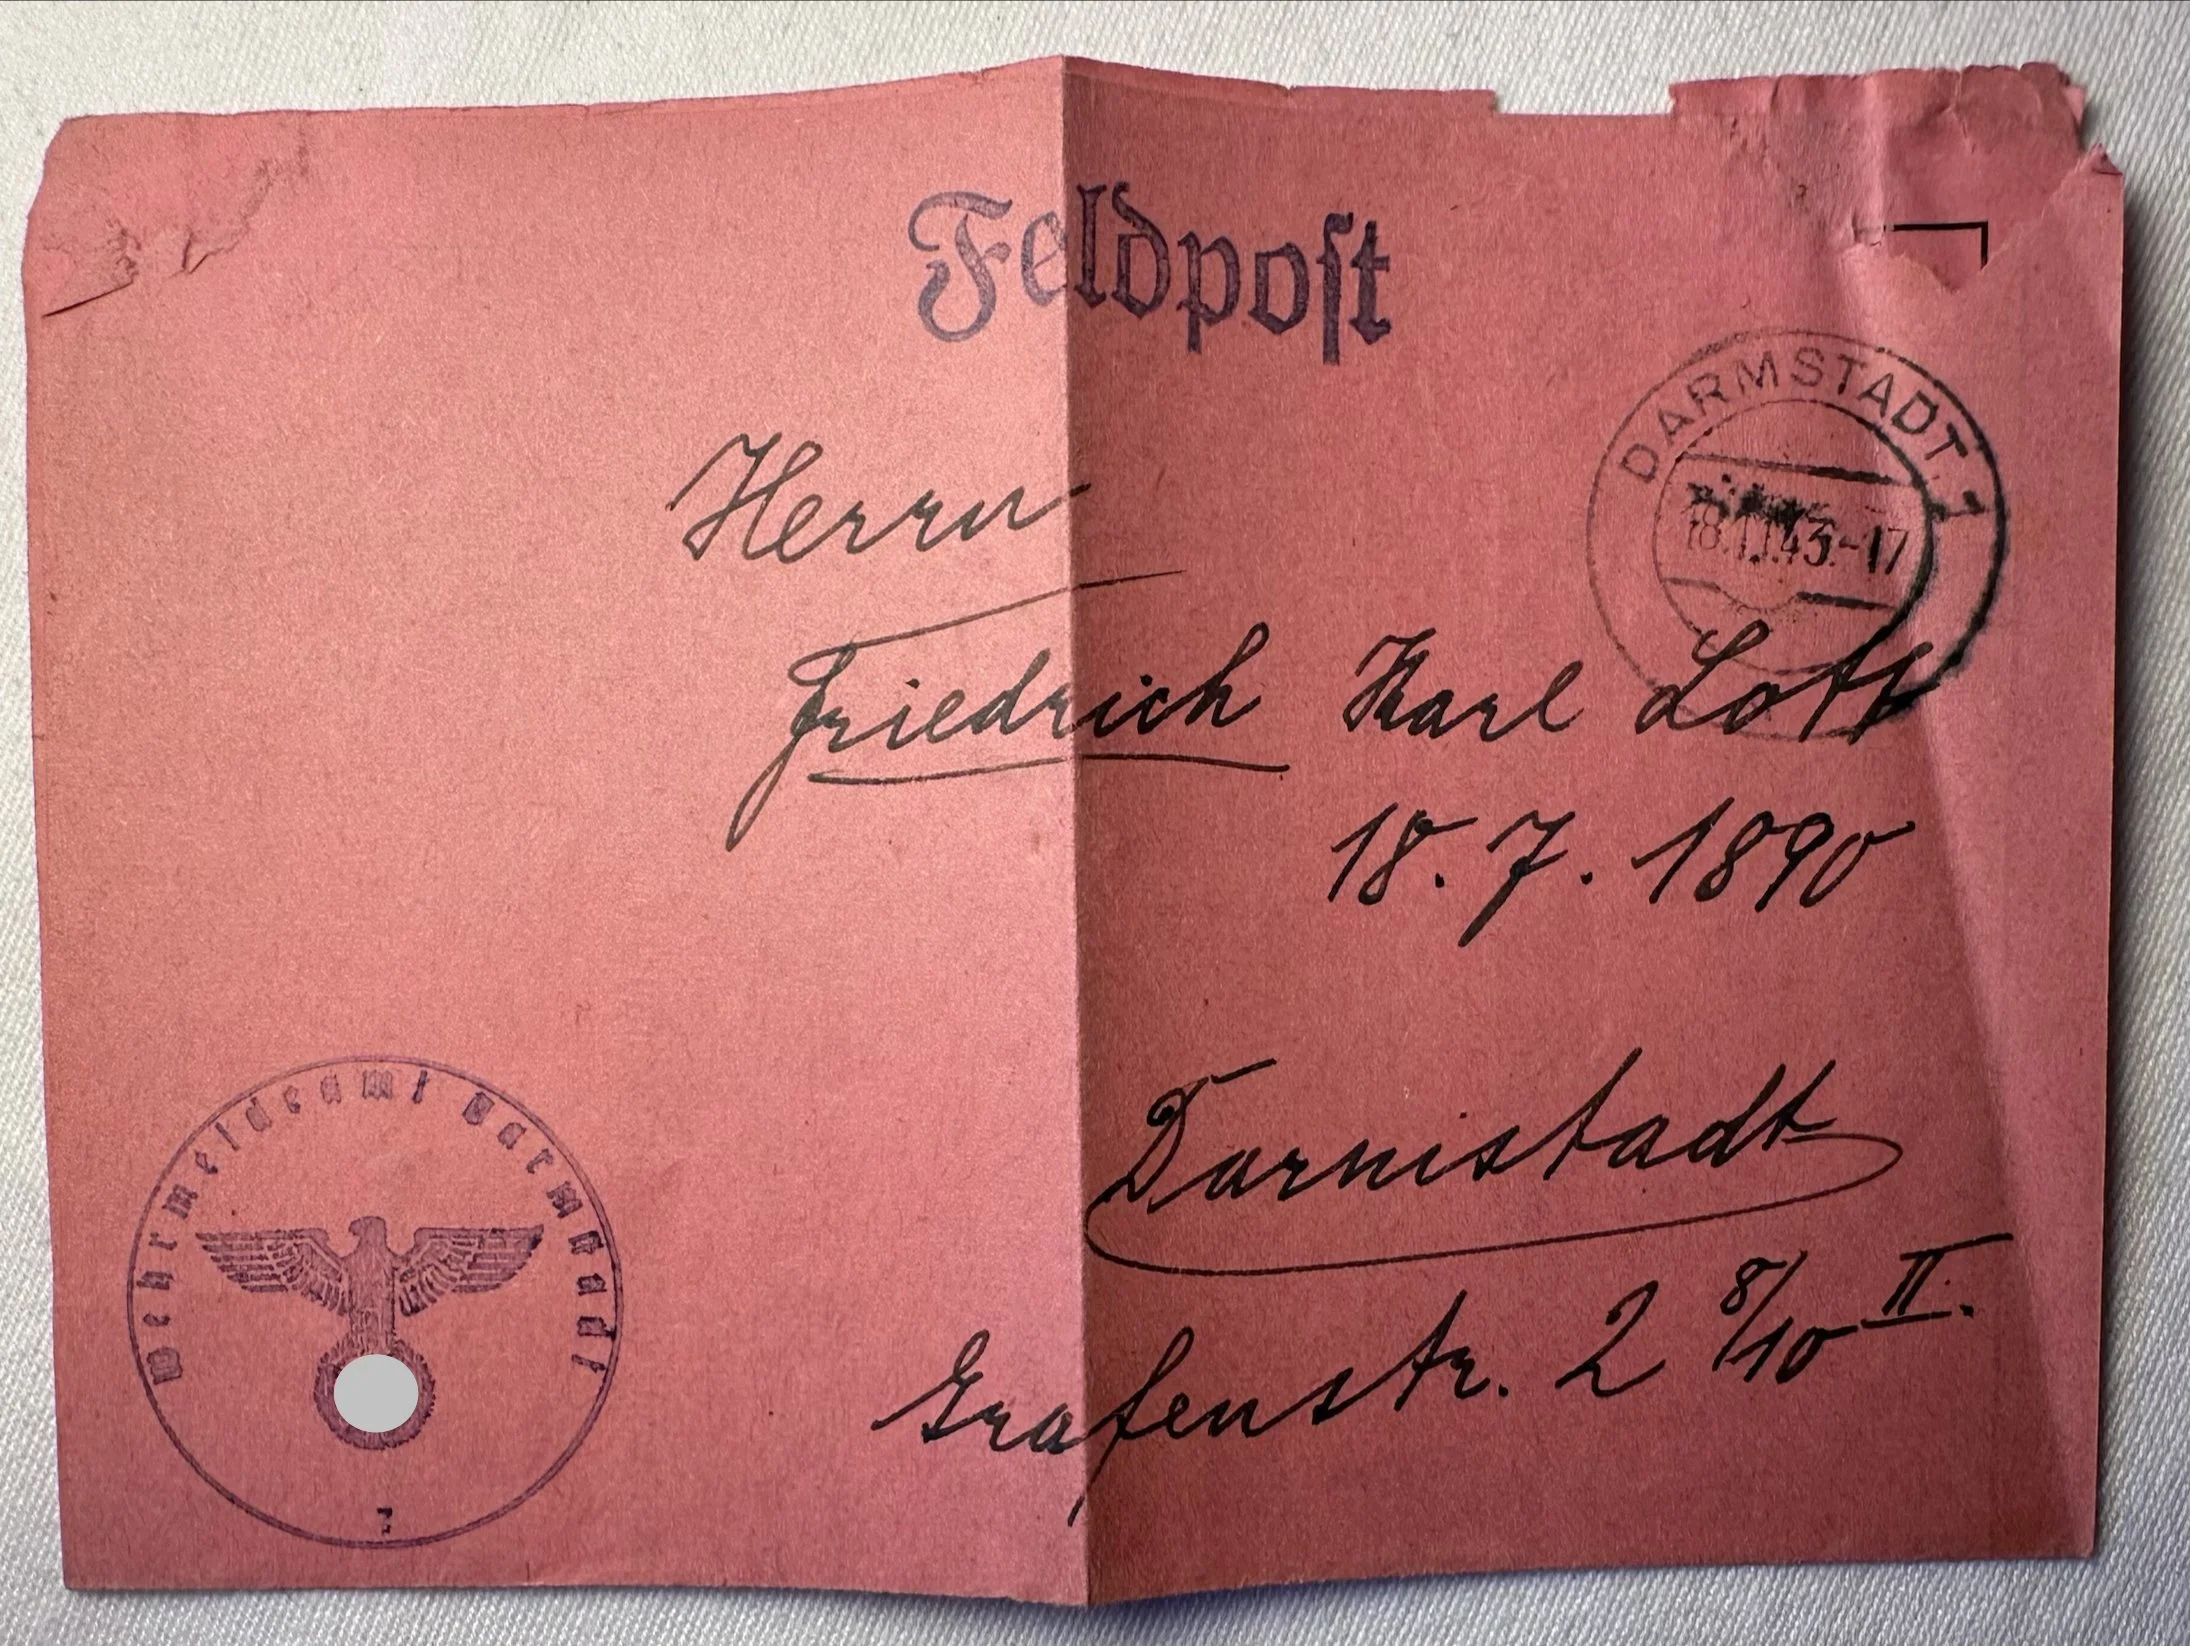 Feldpost
DARMSTADT 1
18.11.43.-17
Herrn
Friedrich Karl Lott
18.7.1890
Darmstadt
Grafenstr. 2 8/10 II.
Wehrmeldeamt Darmstadt